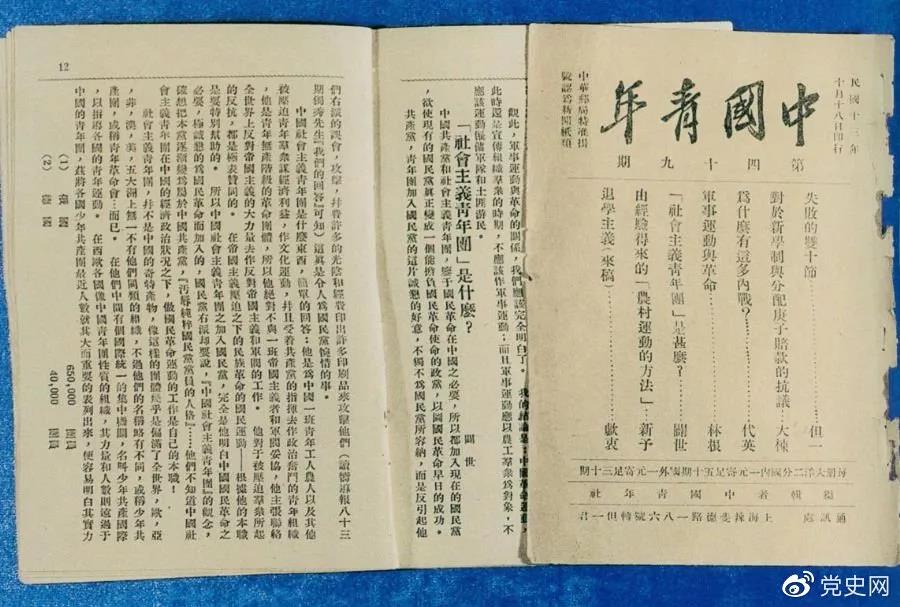 民國十三年
十月十八日印行
中國青年
中華郵局特准掛
號認爲新聞紙類
第四十九期
失敗的雙十節……但一
對於新學制與分配庚子賠款的抗議…大棟
爲什麼有這多內戰?……代英
軍事運動與革命……林根
「社會主義青年團」是甚麼?……闢世
由經驗得來的「農村運動的方法」…新予
退學主義(來稿)……獻衷
每期大洋二分國內一元寄足五十期國外一元寄足三十期
編輯者中國青年社
通訊處 上海辣斐德路一八六號轉但一君
觀此,軍事運動與革命的關係,我們應該完全明白了。我的結論是:中國革命運動,
此時還是宣傳組織羣衆的時期,不應該作軍事運動;而且軍事運動應以農工羣衆爲對象,不
應該運動僱傭軍隊和土匪游民。
「社會主義青年團」是什麼?
闢世
中國共產黨和社會主義青年團,鑒于國民革命在中國之必要,所以都加入現在的國民黨
,欲使現有的國民黨眞正變成一個能擔負國民革命使命的政黨,以圖國民革命早日的成功。
共產黨,青年團加入國民黨的這片誠懇的好意,不獨不爲國民黨所容納,而是反引起他
12
們右派的誤會,攻擊,幷費許多的光陰和經費印出許多印刷品來攻擊他們(讀嚮導報八十三
期獨秀先生『我們的回答』可知)這眞是令人爲國民黨惋惜的事。
中國社會主義青年團是什麼東西,簡單的回答:他是爲中國一班青年工人農人以及其他
被壓迫青年羣衆謀經濟利益,作文化運動,幷且受着共產黨的指揮去作政治奮鬥的青年組織
,他是青年無產階級的革命團體,所以他絕對不與一班帝國主義者和軍閥妥協,他主張聯絡
全世界上反對帝國主義的大力量去作反對帝國主義和軍閥的工作。他對于被壓迫羣衆所起
的反抗,都是極表贊同的。在帝國主義壓迫之下的民族革命的國民運動——根據他的本職
是要特別幫助的。所以中國社會主義青年團之加入國民黨,完全是他明白中國國民革命之
必要,極誠懇的爲國民革命而加入的,國民黨右派却要說,『中國社會主義青年團』的觀念,
確想把本黨逐漸變爲屬於中國共產黨,「汚辱純粹國民黨黨員的人格」……他們不知道中國社
會主義青年團在中國的經濟政治狀况之下,做國民革命運動的工作是自己的本職!
社會主義青年團,幷不是中國的奇特產物,像這樣的團體幾乎是偏滿了全世界,歐,亞
,非,澳,美,五大洲上無一不有他們同類的組織,不過他們的名稱略有不同,或稱少年共
產團,或稱青年革命會…而已。在他們中間有個國際統一的集中機關,名呌少年共產國際
,以指導各國的青年運動。在西歐各國像中國青年團性質的組織,其力量和人數則遠過于
中國的青年團,茲將各國少年共產團最近人數就其大而重要的表列出來,便容易明白其實力
(1) 俄國 650,000 團員
(2) 德國 40,000 團員
党史网